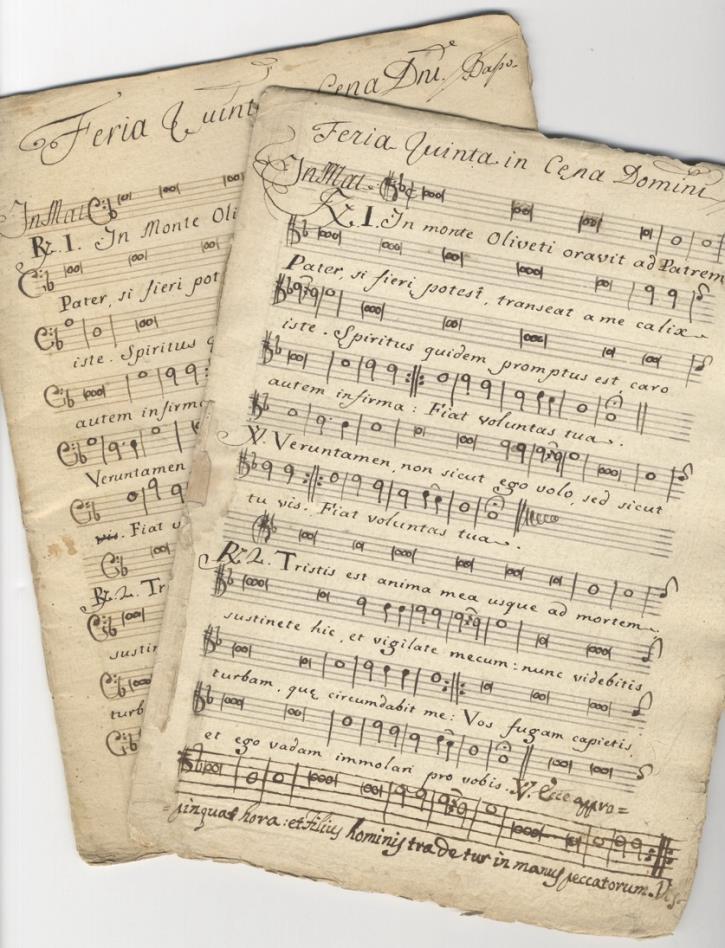 Feria Quint Cena Dni. Basso.
In Mat
℟. 1. In Monte Oli
Pater, si fieri pot
iste. Spiritus q
autem infirm
Veruntamen
vis. Fiat v
℟. 2. Tr
sustin
turb
Feria Quinta in Cena Domini
In Mat.
℟. 1. In monte Oliveti oravit ad Patrem
Pater, si fieri potest, transeat a me calix
iste. Spiritus quidem promptus est, caro
autem infirma: Fiat voluntas tua.
℣. Veruntamen, non sicut ego volo, sed sicut
tu vis. Fiat voluntas tua.
℟. 2. Tristis est anima mea usque ad mortem,
sustinete hic, et vigilate mecum: nunc videbitis
turbam, quę circumdabit me: Vos fugam capietis,
et ego vadam immolari pro vobis. ℣. Ecce appro=
=pinquat hora: et Filius hominis tradetur in manus peccatorum. Vos